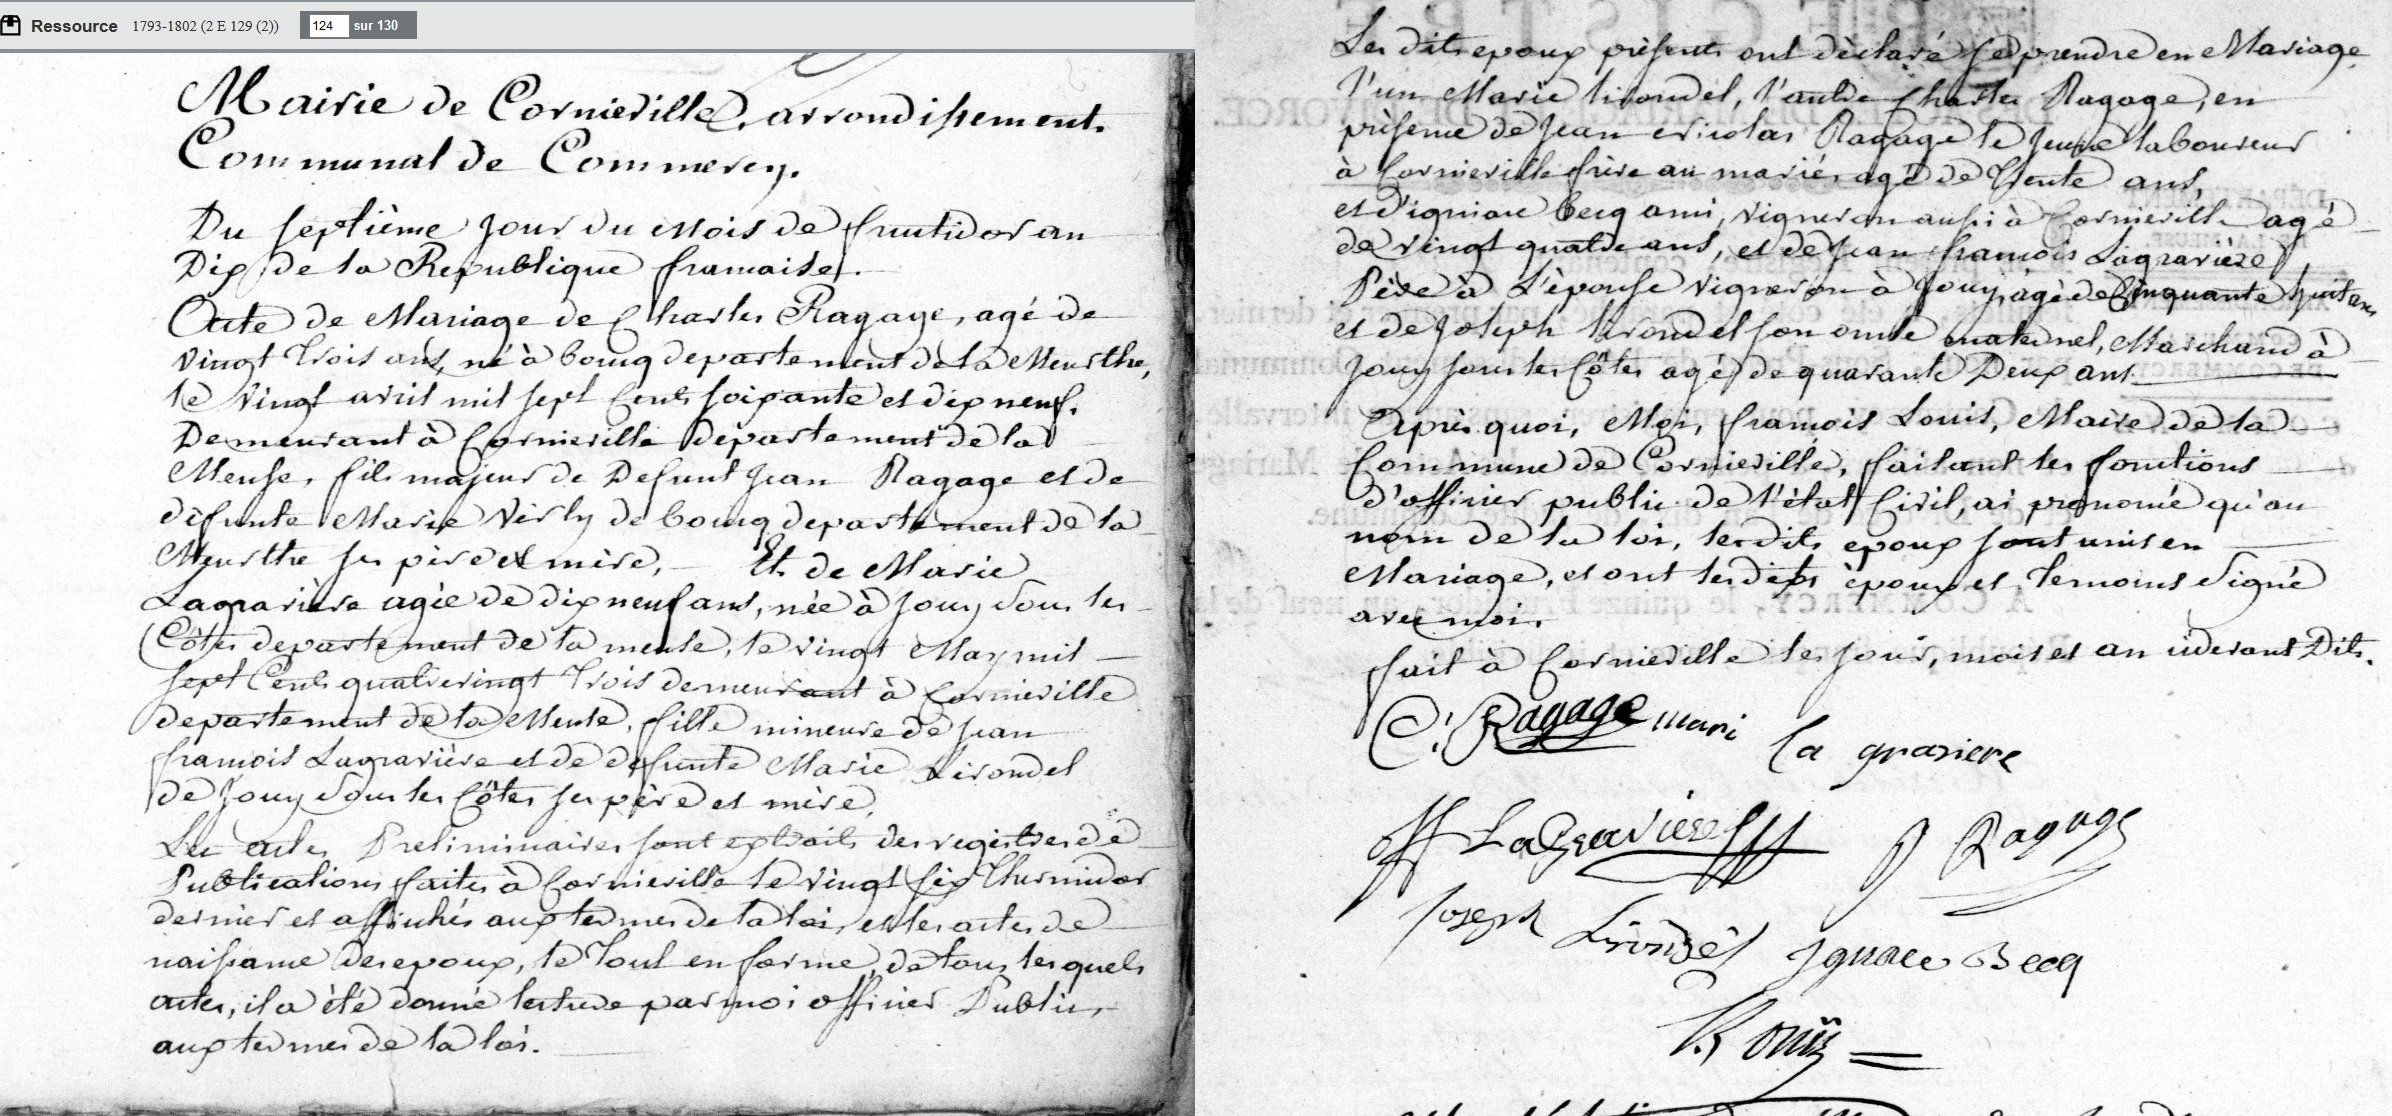 Ressource 1793-1802 (2 E 129 (2)) 124 sur 130
Mairie de Cornieville, arrondissement
Communal de Commercy.
Du septième jour du Mois de fructidor an
Dix de la Republique francaise.
Acte de Mariage de Charles Ragage, agé de
vingt Trois ans, né à boucq departement de la Meurthe,
le vingt avril mil sept Cents soixante et dix neuf.
Demeurant à Cornieville département de la
Meuse, fils majeur de Defunt Jean Ragage et de
défunte Marie Virly de boucq departement de la
Meurthe ses père et mère, Et de Marie
Lagravière agée de dix neuf ans, née à Jouy sous les
Côtes departement de la meuse, le vingt May mil
sept Cents quatrevingt Trois demeurant à Cornieville
departement de la Meuse, fille mineure de Jean
francois Lagravière et de defunte Marie Lirondel
de Jouy sous les Côtes ses père et mère,
Les actes Preliminaires sont extraits des registres de
Publications faites à Cornieville le vingt six Thermidor
dernier et affichés aux termes de la loi, et les actes de
naissance des epoux, le Tout en forme, de tous les quels
actes, il a été donné lecture par moi officier Public,
aux termes de la loi.
Les dits epoux présents ont déclaré se prendre en Mariage
l'un Marie lirondel, l'autre Charles Ragage, en
présence de Jean Nicolas Ragage le jeune laboureur
à Cornieville frère au marié, agé de Trente ans,
et d'igniace becq ami, vigneron aussi à Cornieville agé
de vingt quatre ans, et de Jean francois Lagravière
Père à L'épouse vigneron à Jouy, agé de Cinquante huit ans
et de Joseph lirondel son oncle maternel, Marchand à
Jouy sous les Côtes agé de quarante Deux ans
Après quoi, Moi, francois Louis, Maire de la
Commune de Cornieville, faisant les fonctions
d'officier public de l'état Civil, ai prononcé qu'au
nom de la loi, les dits epoux sont unis en
Mariage, et ont les dits époux et Temoins signé
avec moi.
fait à Cornieville les jour, mois et an cidevant Dits.
C. Ragage mari la graviere
LaGravière Ragage
Joseph Lirondel Ignace Becq